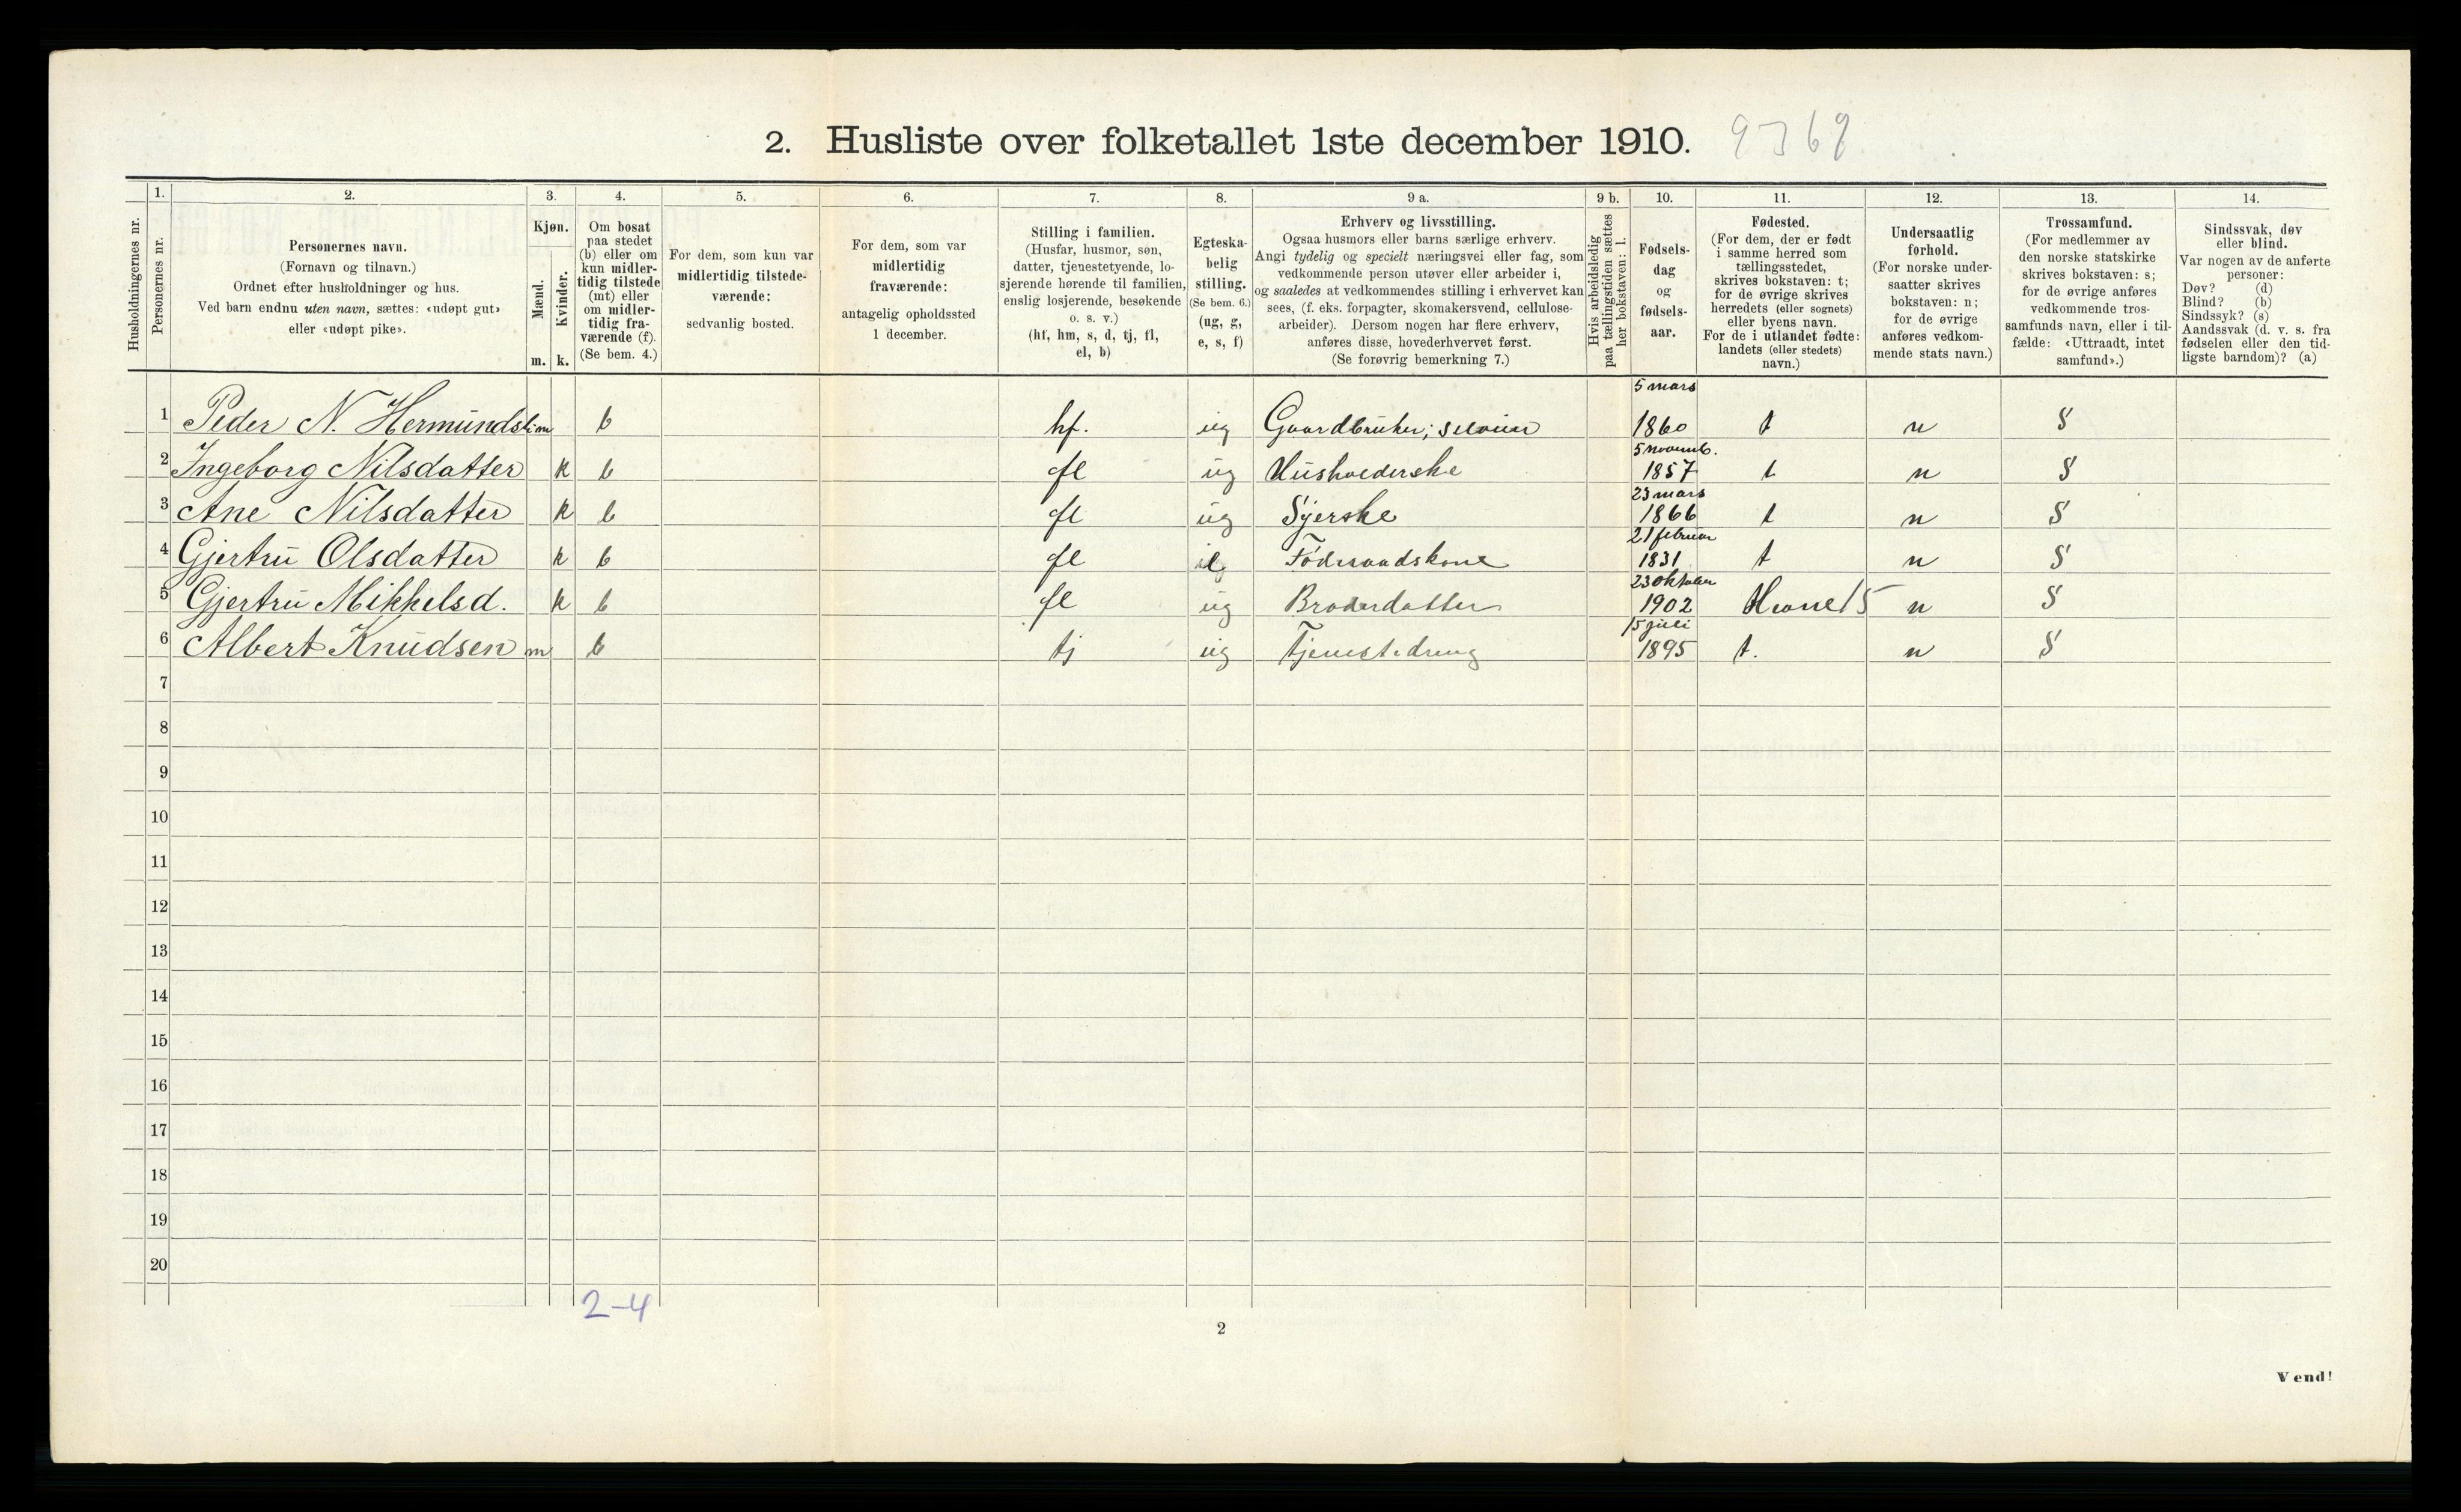 2. Husliste over folketallet 1ste december 1910. 9369
Husholdningernes nr.
1. Personernes nr.
2. Personernes navn.
(Fornavn og tilnavn.)
Ordnet efter husholdninger og hus.
Ved barn endnu uten navn, sættes: «udøpt gut»
eller «udøpt pike».
3. Kjøn.
Mænd. Kvinder.
m. k.
4. Om bosat
paa stedet
(b) eller om
kun midler-
tidig tilstede
(mt) eller
om midler-
tidig fra-
værende (f).
(Se bem. 4.)
5. For dem, som kun var
midlertidig tilstede-
værende:
sedvanlig bosted.
6. For dem, som var
midlertidig
fraværende:
antagelig opholdssted
1 december.
7. Stilling i familien.
(Husfar, husmor, søn,
datter, tjenestetyende, lo-
sjerende hørende til familien,
enslig losjerende, besøkende
o. s. v.)
(hf, hm, s, d, tj, fl,
el, b)
8. Egteska-
belig
stilling.
(Se bem. 6.)
(ug, g,
e, s, f)
9 a. Erhverv og livsstilling.
Ogsaa husmors eller barns særlige erhverv.
Angi tydelig og specielt næringsvei eller fag, som
vedkommende person utøver eller arbeider i,
og saaledes at vedkommendes stilling i erhvervet kan
sees, (f. eks. forpagter, skomakersvend, cellulose-
arbeider). Dersom nogen har flere erhverv,
anføres disse, hovederhvervet først.
(Se forøvrig bemerkning 7.)
9 b. Hvis arbeidsledig
paa tællingstiden sættes
her bokstaven: l.
10. Fødsels-
dag
og
fødsels-
aar.
11. Fødested.
(For dem, der er født
i samme herred som
tællingsstedet,
skrives bokstaven: t;
for de øvrige skrives
herredets (eller sognets)
eller byens navn.
For de i utlandet fødte:
landets (eller stedets)
navn.)
12. Undersaatlig
forhold.
(For norske under-
saatter skrives
bokstaven: n;
for de øvrige
anføres vedkom-
mende stats navn.)
13. Trossamfund.
(For medlemmer av
den norske statskirke
skrives bokstaven: s;
for de øvrige anføres
vedkommende tros-
samfunds navn, eller i til-
fælde: «Uttraadt, intet
samfund».)
14. Sindssvak, døv
eller blind.
Var nogen av de anførte
personer:
Døv? (d)
Blind? (b)
Sindssyk? (s)
Aandssvak (d. v. s. fra
fødselen eller den tid-
ligste barndom)? (a)
1 Peder N. Hermunds m b hf. ug Gaardbruker; 5 mars 1860 t n S
2 Ingeborg Nilsdatter k b fl ug Husholderske 5 novemb. 1857 t n S
3 Ane Nilsdatter k b fl ug Syerske 23 mars 1866 t n S
4 Gjertru Olsdatter k b fl e Föderaadskone 21 februar 1831 t n S
5 Gjertru Mikkelsd. k b fl ug Broderdatter 23 oktober 1902 15 n S
6 Albert Knudsen m b tj ug Tjenestedreng 15 juli 1895 t. n S
7
8
9
10
11
12
13
14
15
16
17
18
19
20
2-4
2
Vend!